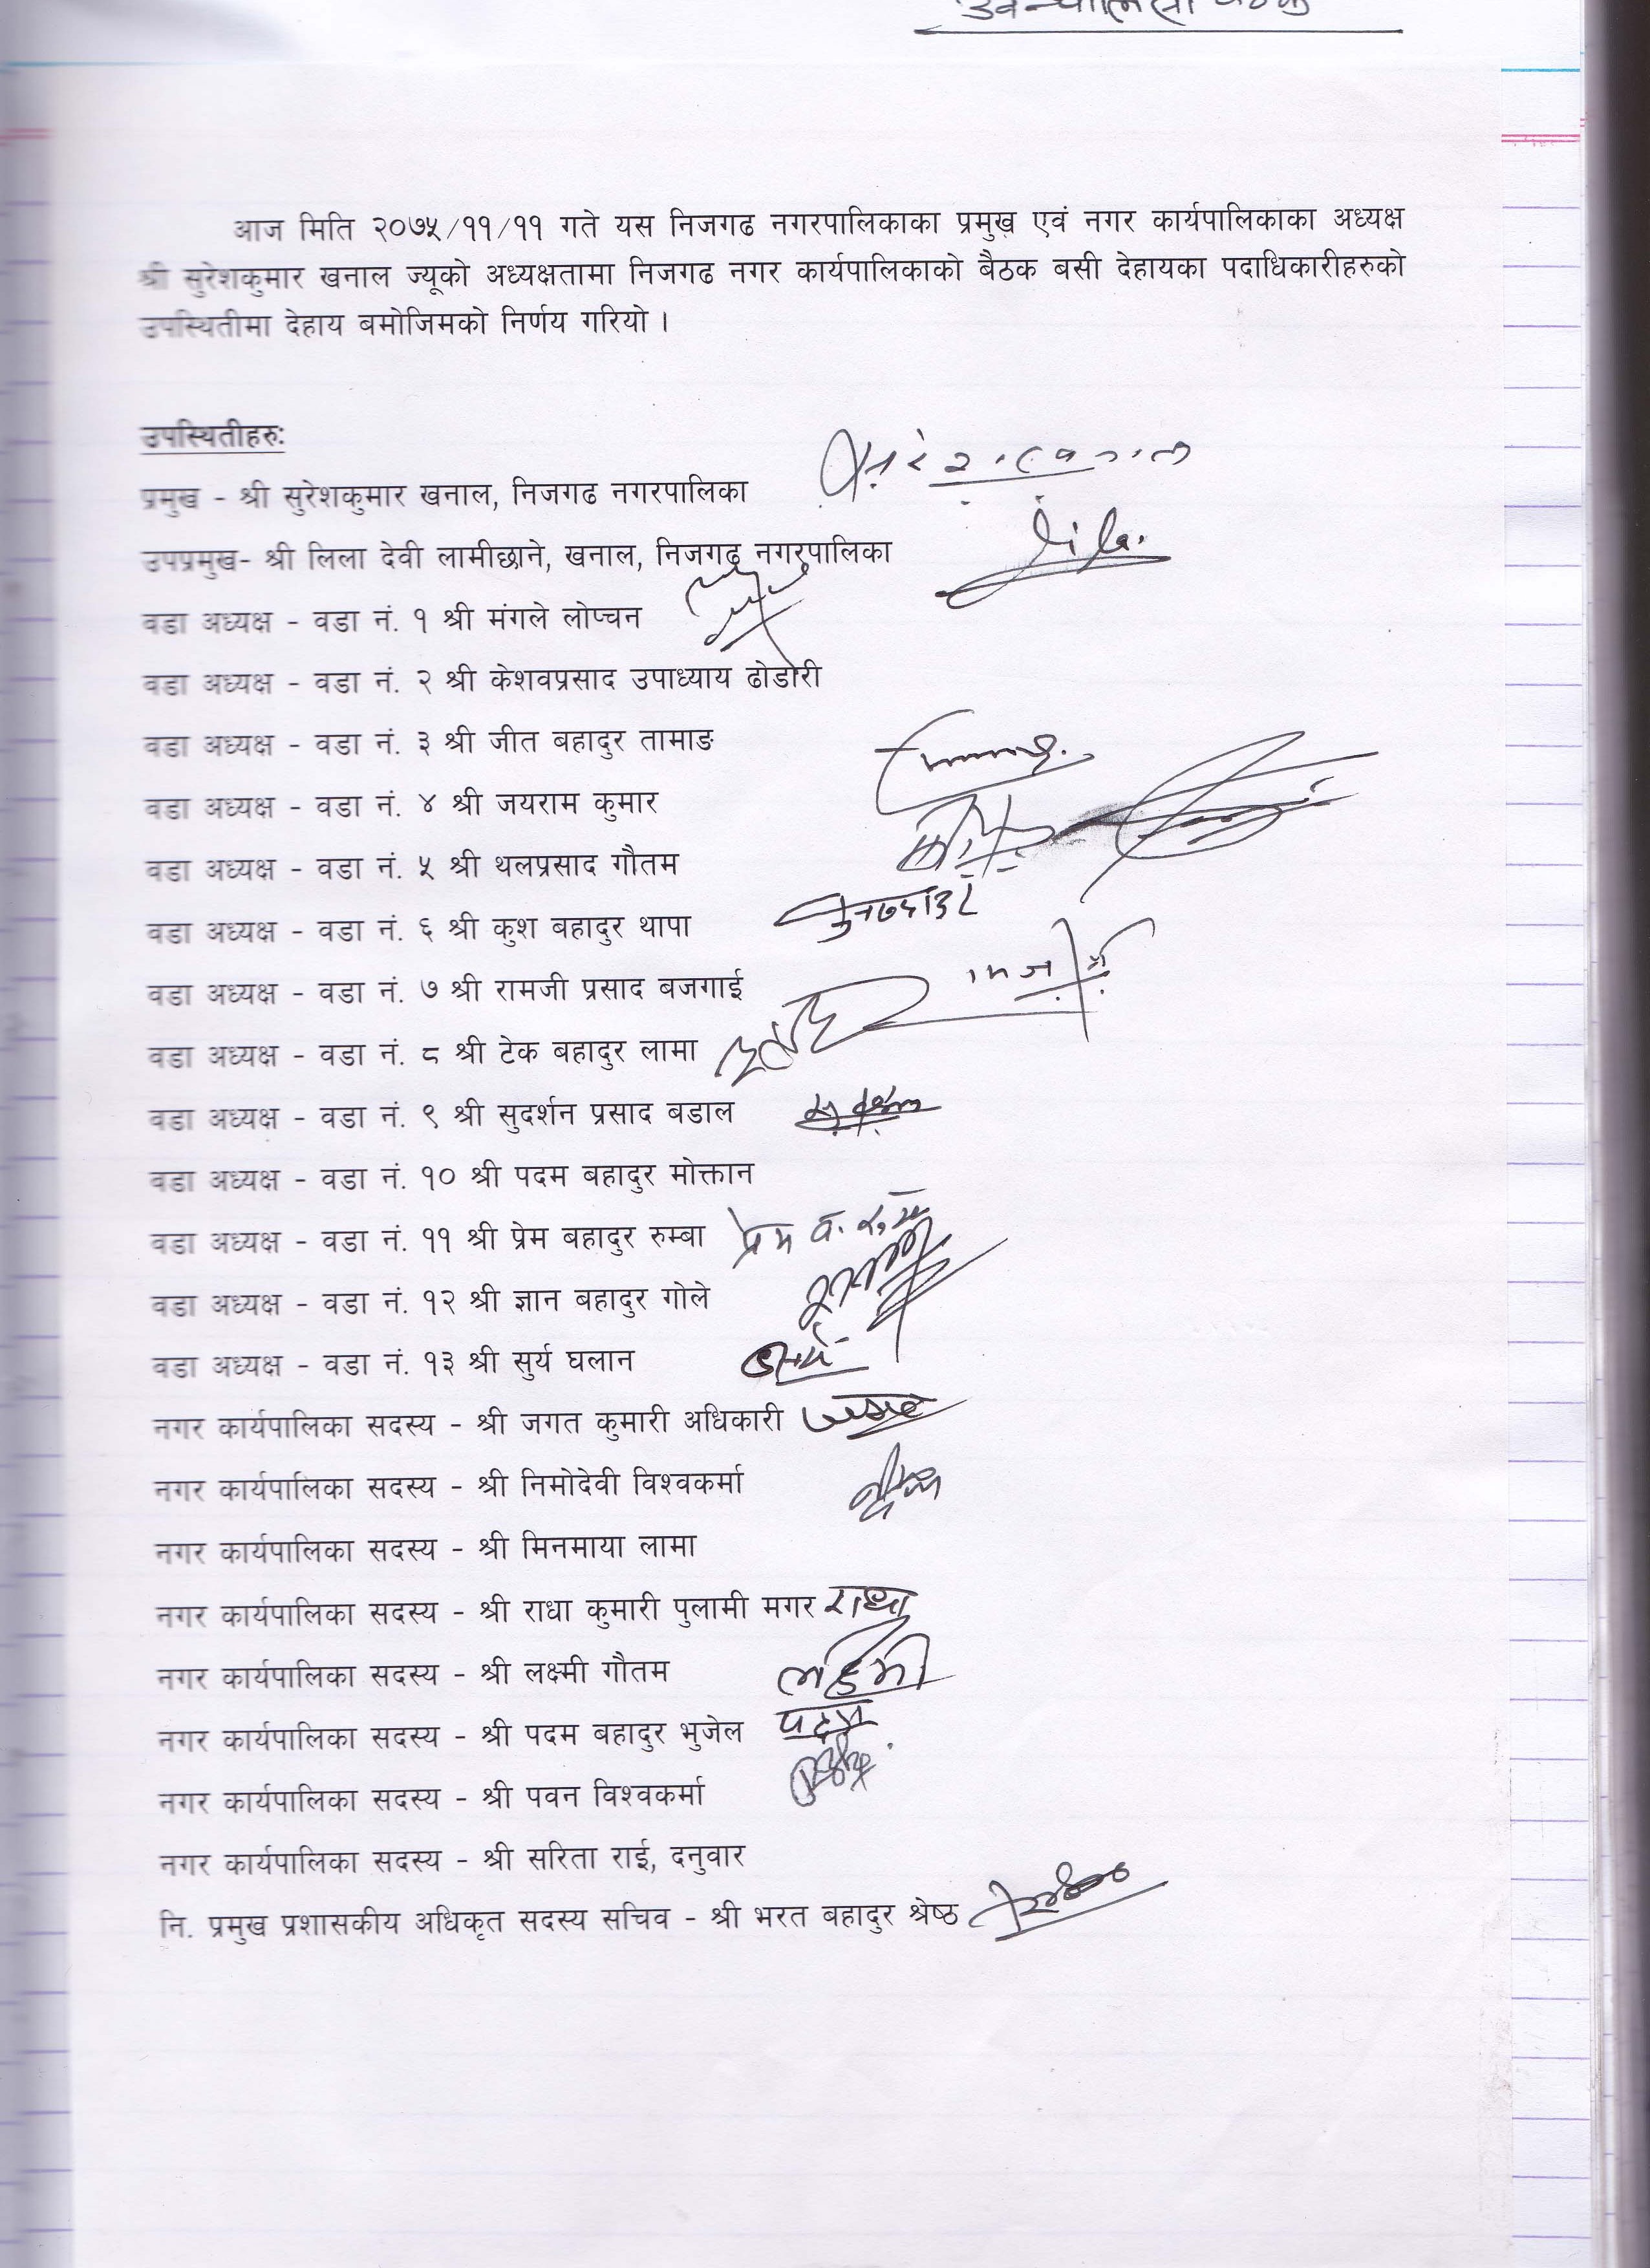 आज मिति २०७५/११/११ गते यस निजगढ नगरपालिकाका प्रमुख एवं नगर कार्यपालिकाका अध्यक्ष
श्री सुरेशकुमार खनाल ज्यूको अध्यक्षतामा निजगढ नगर कार्यपालिकाको बैठक बसी देहायका पदाधिकारीहरुको
उपस्थितीमा देहाय बमोजिमको निर्णय गरियो ।
उपस्थितीहरुः
प्रमुख - श्री सुरेशकुमार खनाल, निजगढ नगरपालिका
उपप्रमुख- श्री लिला देवी लामीछाने, खनाल, निजगढ नगरपालिका
वडा अध्यक्ष - वडा नं. १ श्री मंगले लोप्चन
वडा अध्यक्ष - वडा नं. २ श्री केशवप्रसाद उपाध्याय ढोडारी
वडा अध्यक्ष - वडा नं. ३ श्री जीत बहादुर तामाङ
वडा अध्यक्ष - वडा नं. ४ श्री जयराम कुमार
वडा अध्यक्ष - वडा नं. ५ श्री थलप्रसाद गौतम
वडा अध्यक्ष - वडा नं. ६ श्री कुश बहादुर थापा
वडा अध्यक्ष - वडा नं. ७ श्री रामजी प्रसाद बजगाई
वडा अध्यक्ष - वडा नं. ८ श्री टेक बहादुर लामा
वडा अध्यक्ष - वडा नं. ९ श्री सुदर्शन प्रसाद बडाल
वडा अध्यक्ष - वडा नं. १० श्री पदम बहादुर मोक्तान
वडा अध्यक्ष - वडा नं. ११ श्री प्रेम बहादुर रुम्बा प्रेम ब.
वडा अध्यक्ष - वडा नं. १२ श्री ज्ञान बहादुर गोले
वडा अध्यक्ष - वडा नं. १३ श्री सुर्य घलान
नगर कार्यपालिका सदस्य - श्री जगत कुमारी अधिकारी
नगर कार्यपालिका सदस्य - श्री निमोदेवी विश्वकर्मा
नगर कार्यपालिका सदस्य - श्री मिनमाया लामा
नगर कार्यपालिका सदस्य - श्री राधा कुमारी पुलामी मगर राधा
नगर कार्यपालिका सदस्य - श्री लक्ष्मी गौतम
नगर कार्यपालिका सदस्य - श्री पदम बहादुर भुजेल
नगर कार्यपालिका सदस्य - श्री पवन विश्वकर्मा
नगर कार्यपालिका सदस्य - श्री सरिता राई, दनुवार
नि. प्रमुख प्रशासकीय अधिकृत सदस्य सचिव - श्री भरत बहादुर श्रेष्ठ